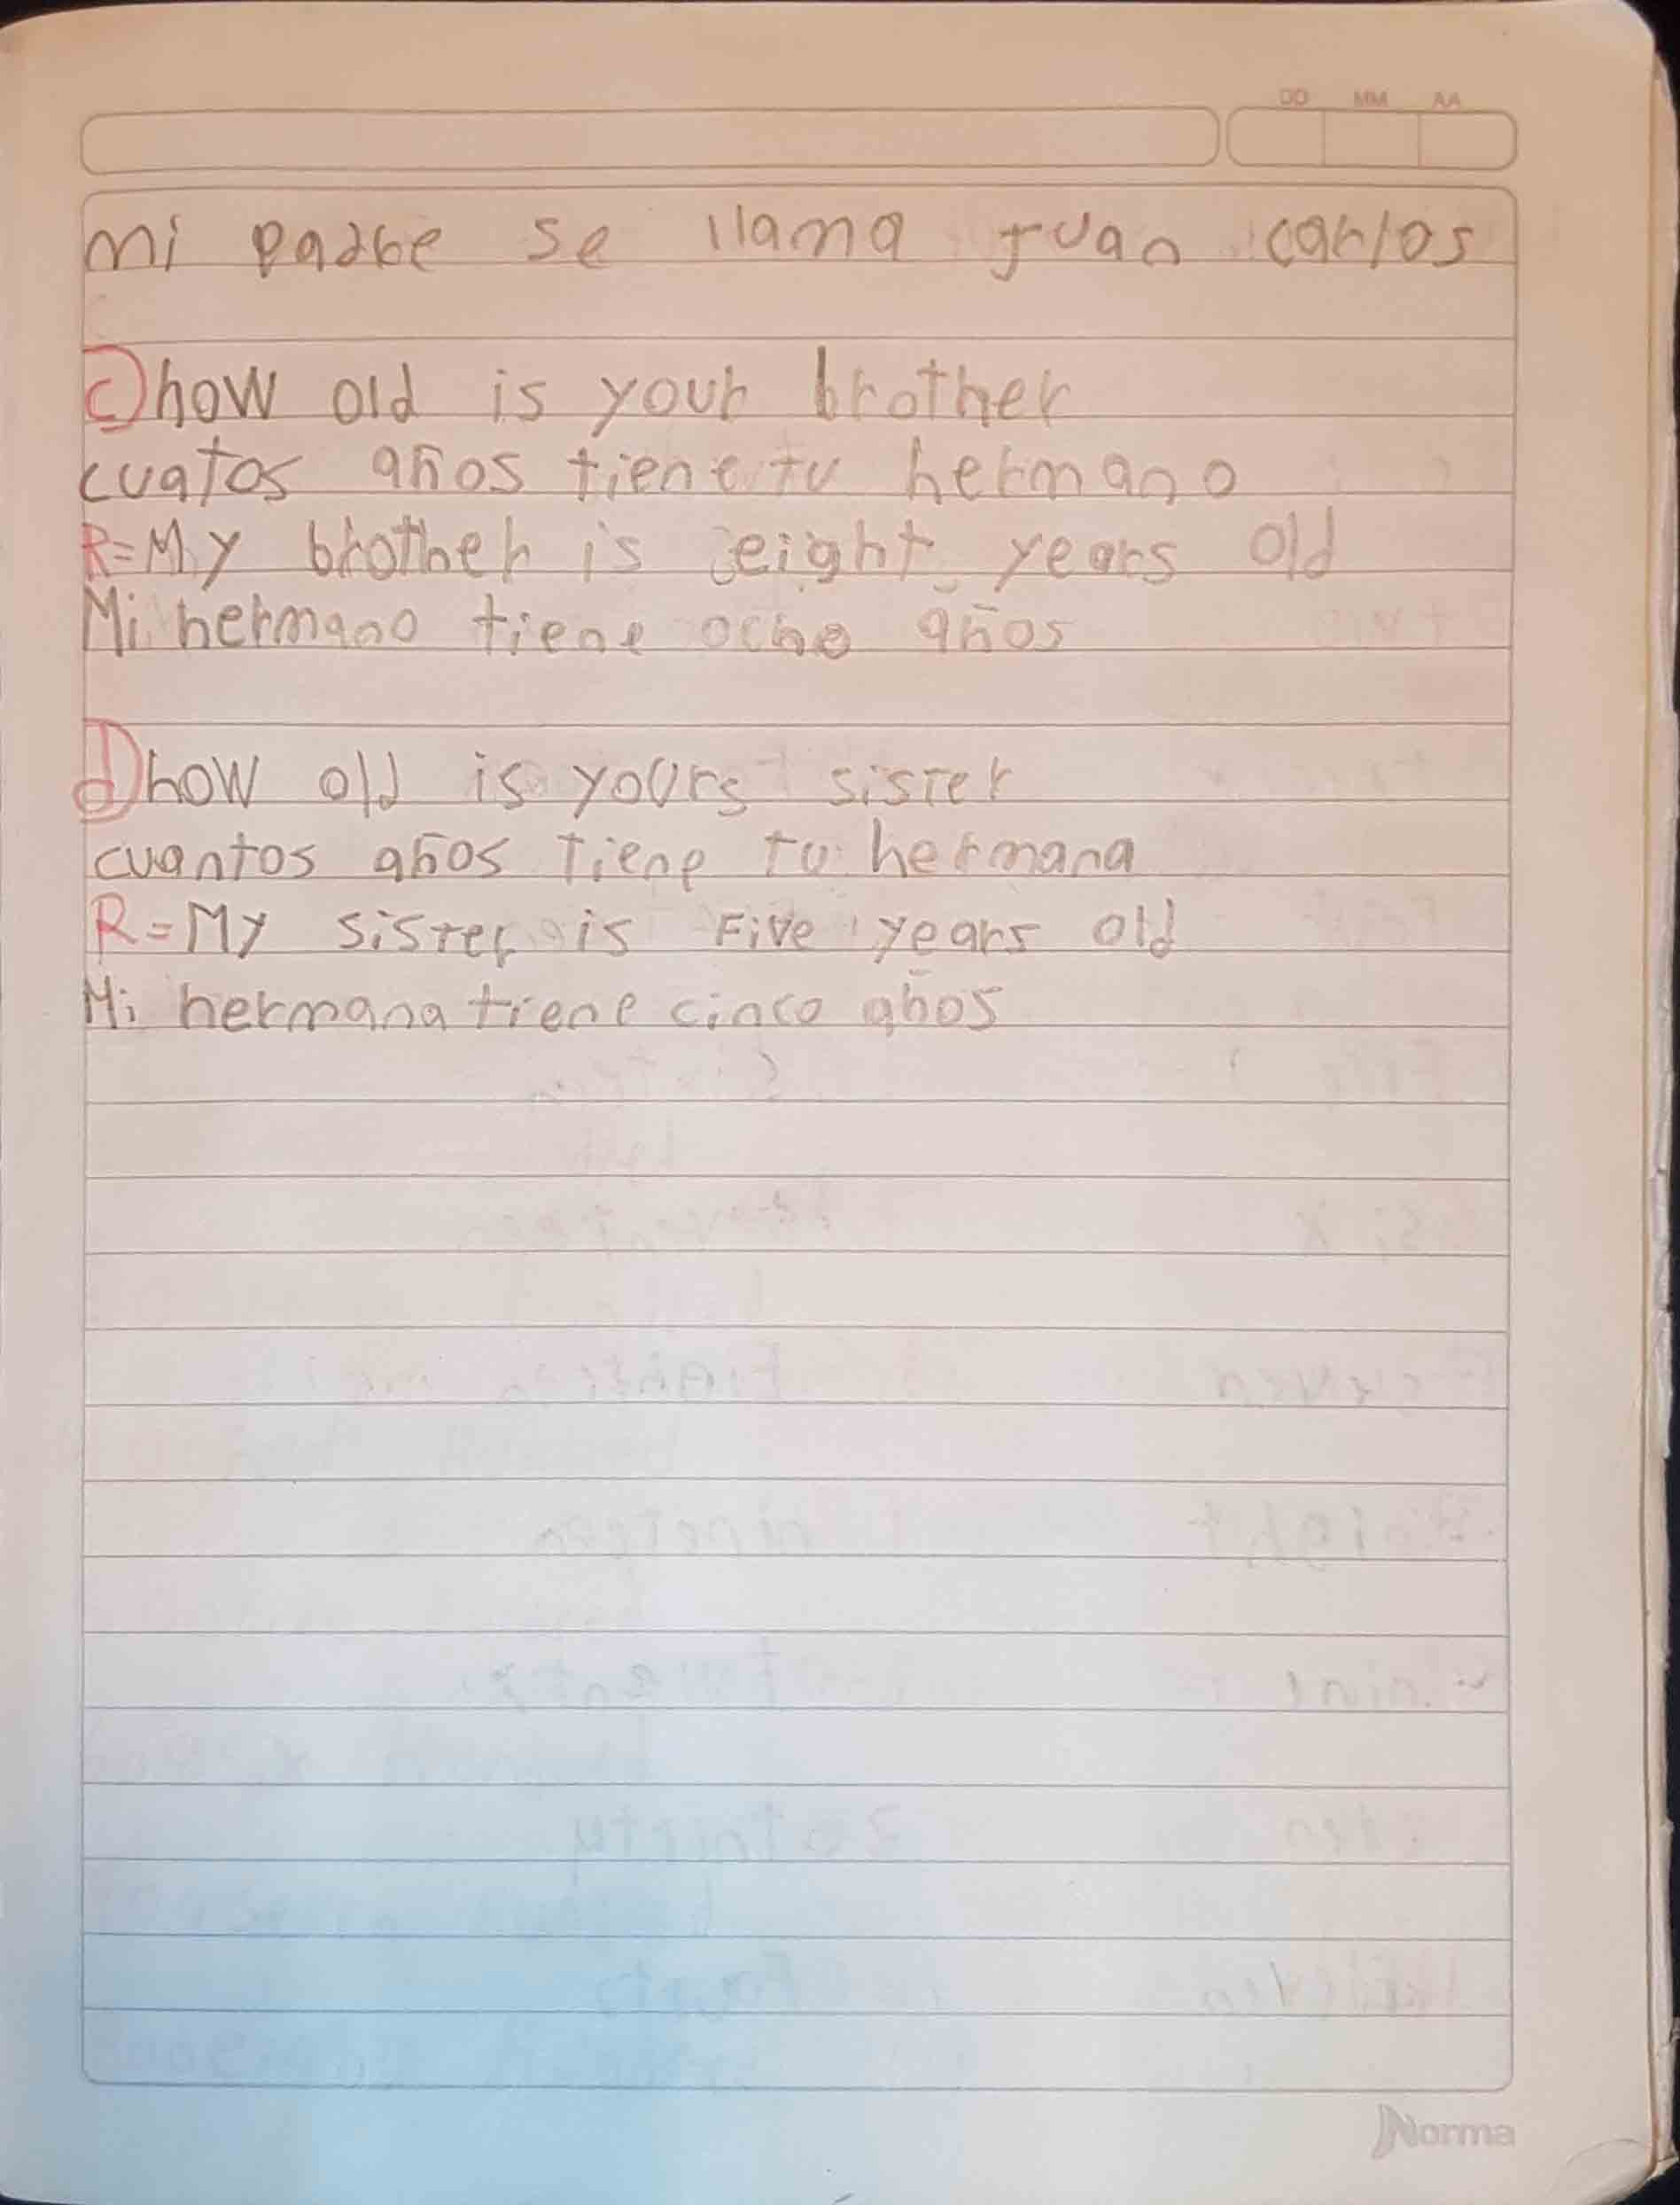 DD MM AA
mi padre se llama Juan carlos
c) how old is your brother
cuatos años tiene tu hermano
R=My brother is eight years old
Mi hermano tiene ocho años
d) how old is yours sister
cuantos años tiene tu hermana
R=My sister is Five years old
Mi hermana tiene cinco años
Norma